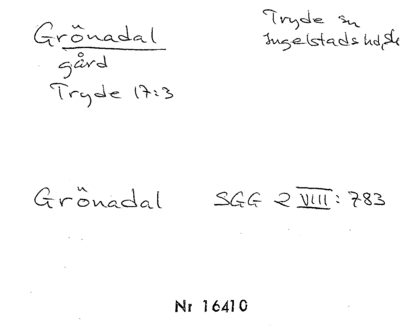 Grönadal
gård
Tryde 17:3
Tryde sn
Ingelstads hd, Sk
Grönadal SGG 2 VIII: 783
Nr 16410